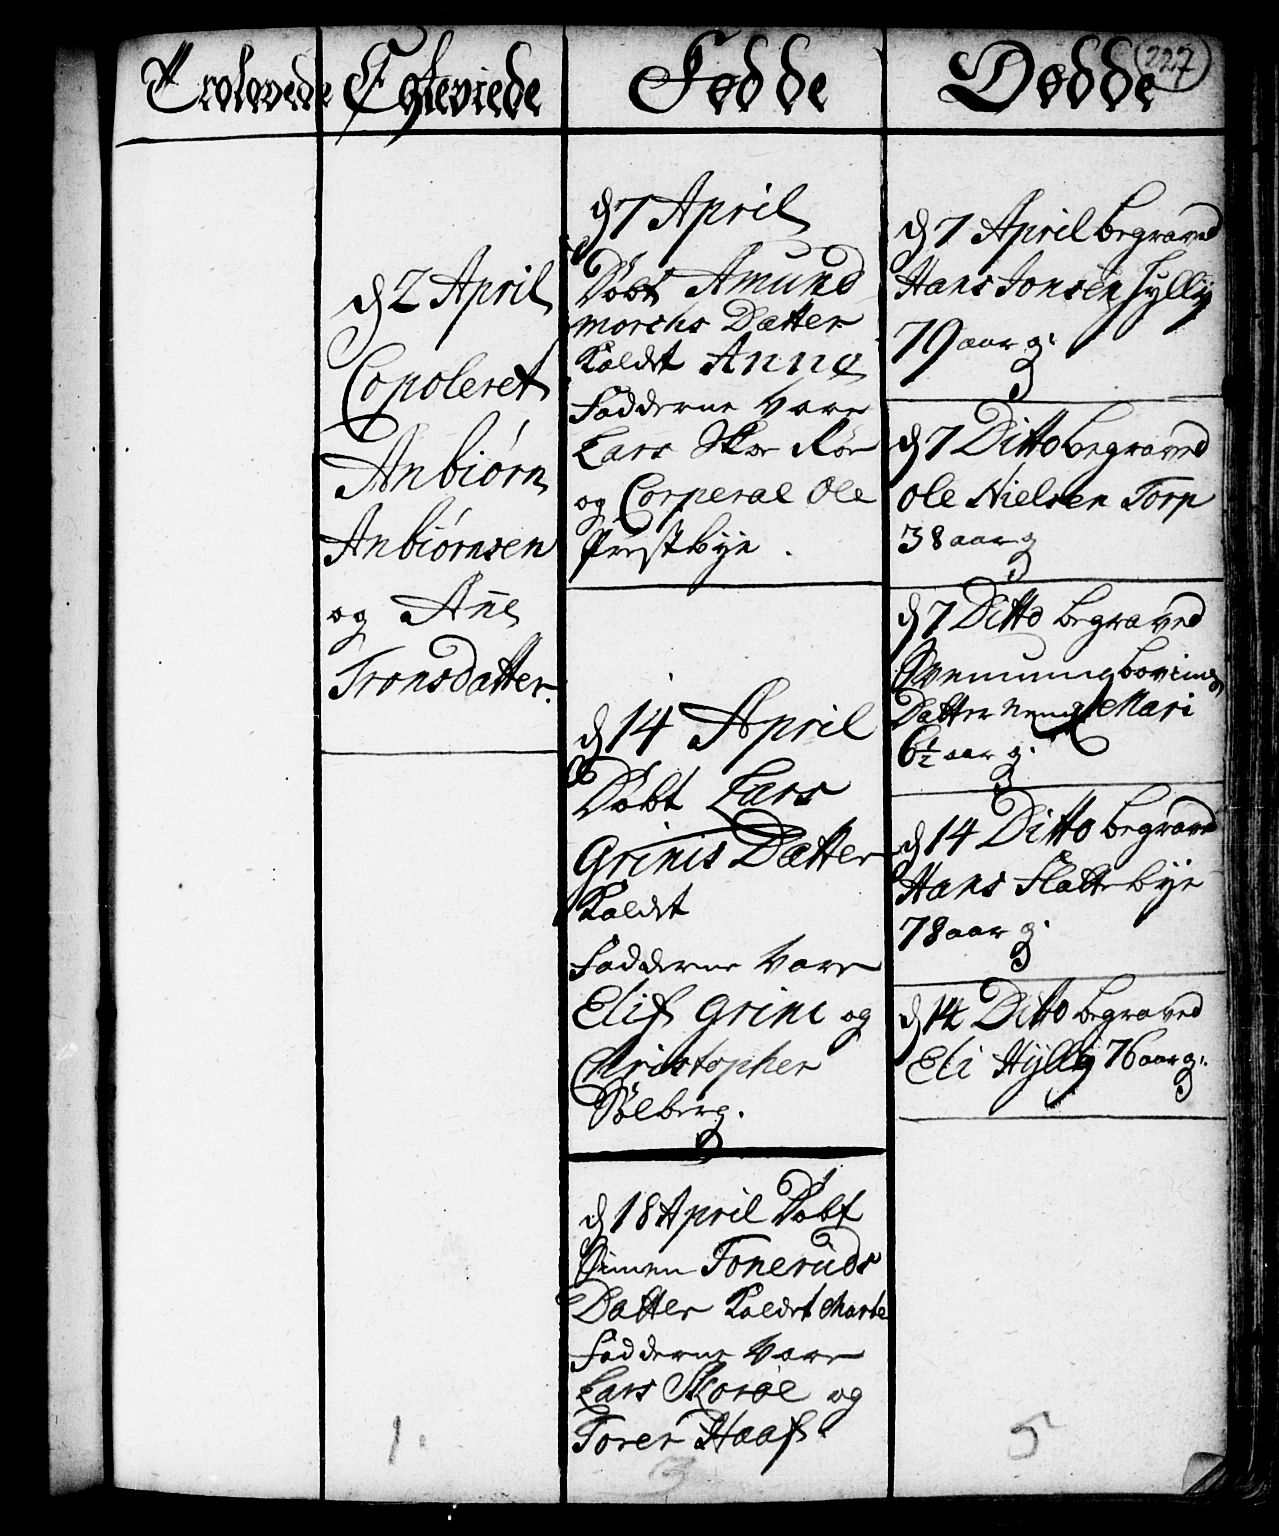 227
Trolovede
Egteviede
Fødde
Døde
d 2 April
Copoleret
Anbiørn
Anbiørnsen
og Añe
Tronsdatter.
1.
d 7 April
Døbt Amund
morchs Datter
Kaldet Anne
Fadderne Vare
Lars Skor
og Corperal Ole
Prestbye .
d 14 April
Døbt Lars
Grinis Datter
Kaldet
Fadderne Vare
Elif Grini og
Christopher
Sølberg.
d 18 April Døbt
Simen Toneruds
Datter Kaldet Marte
Fadderne Vare
Lars Skorøe og
Torer Haaf
3
d 7 April begraved
Hans Jonsen Hylli
79 aar g.
d 7 Ditto begraved
Ole Nielsen Torp
38 aar g
d 7 Ditto begraved
Svennung
Datter Mari
6½ aar g.
d 14 Ditto begraved
Hans Flattebye
78 aar g.
d 14 Ditto begraved
Eli Hylli 76 aar g.
5